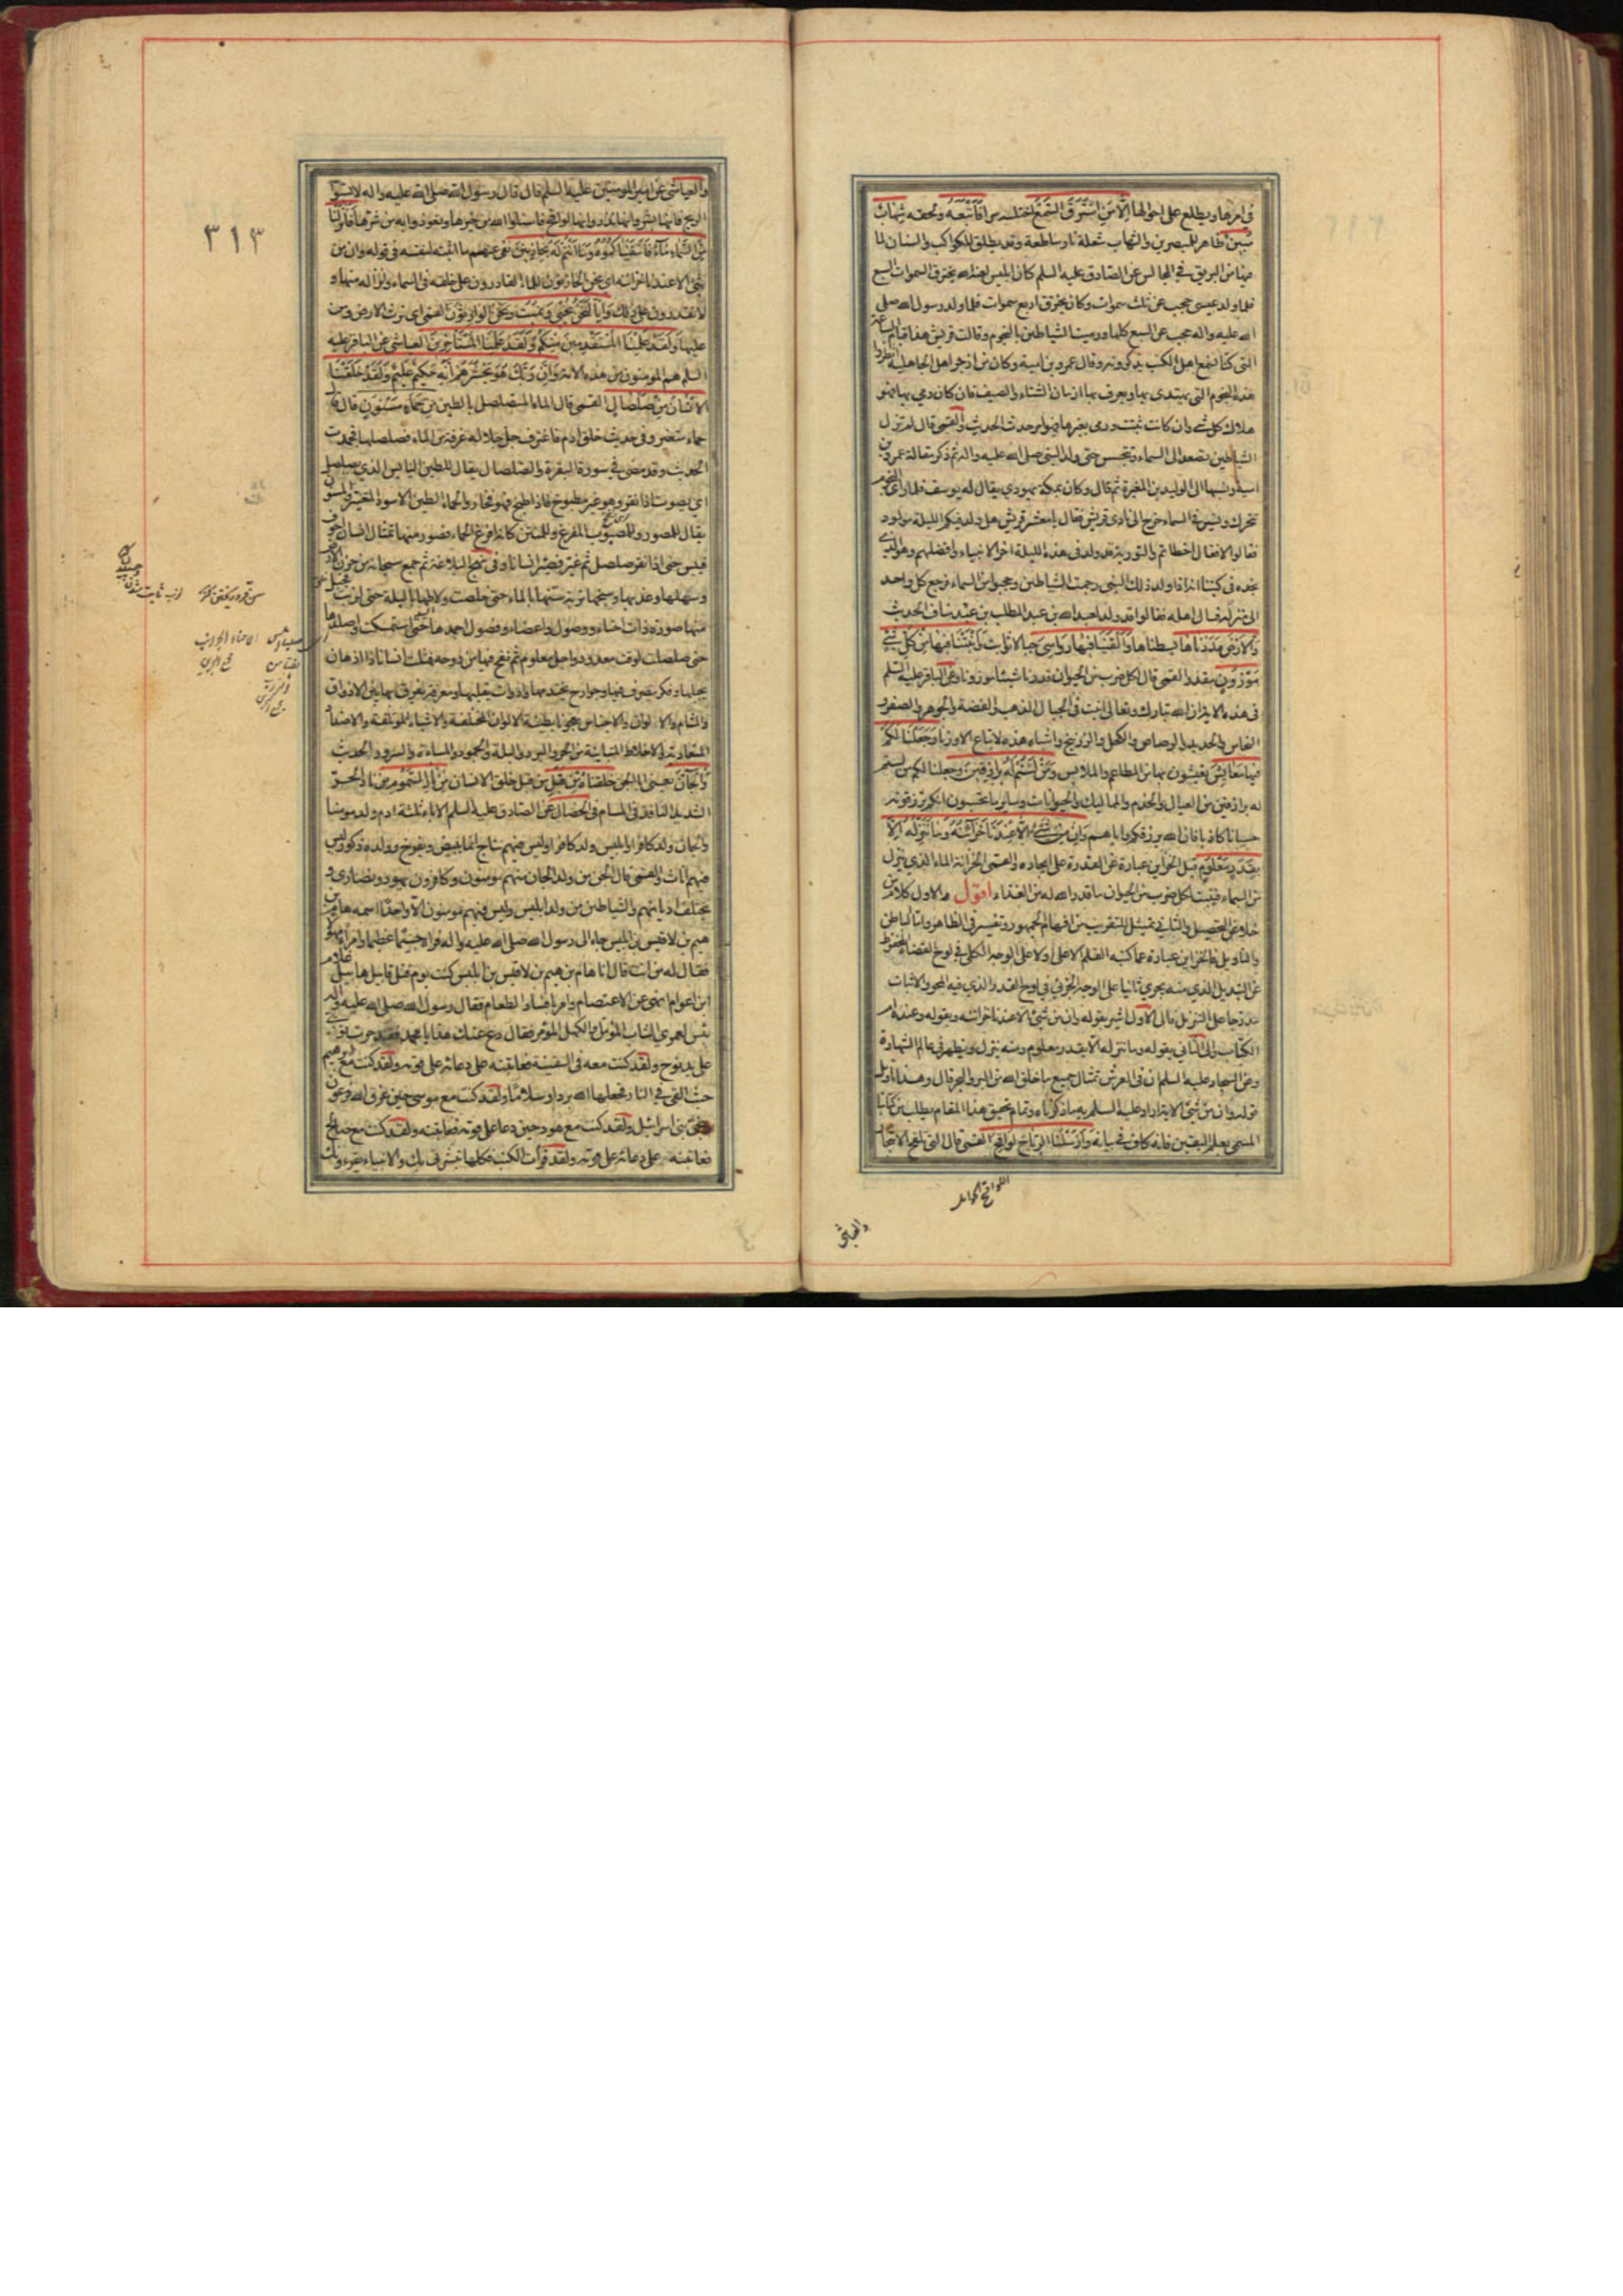 في امرها ويطلع على احوالها اِلَّا مَنِ اسْتَرَقَ السَّمْعَ اختلسه سرا فَاَتْبَعَهُ ولحقه شِهَابٌ
مُبِينٌ ظاهر للمبصرين والشهاب شعلة نار ساطعة وقد يطلق للكواكب والسنان لما
فيها من البريق في المجالس عن الصادق عليه السلم كان ابليس لعنه الله يخترق السموات السبع
فلما ولد عيسى حجب عن ثلث سموات وكان يخترق اربع سموات فلما ولد رسول الله صلى
الله عليه واله حجب عن السبع كلها ورميت الشياطين بالنجوم وقالت قريش هذا قيام الساعة
التى كنا نسمع اهل الكتب يذكرونه وقال عمرو بن امية وكان من ازجر اهل الجاهلية انظروا
هذه النجوم التى يهتدى بها ويعرف بها ازمان الشتاء والصيف فان كان رمى بها فهو
هلاك كل شئ وان كانت ثبتت ورمى بغيرها فهو امر حدث الحديث والقمى قال لم تزل
الشياطين تصعد الى السماء وتجسس حتى ولد النبى صلى الله عليه واله ثم ذكر مقالة عمرو بن
امية ونسبها الى الوليد بن المغيرة ثم قال وكان بمكة يهودي يقال له يوسف فلما راى النجوم
تتحرك وتسير في السماء خرج الى نادى قريش فقال يا معشر قريش هل ولد فيكم الليلة مولود
فقالوا لا فقال اخطاتم والتورية قد ولد فى هذه الليلة اخر الانبياء وافضلهم وهو الذي
نجده فى كتبنا انه اذا ولد ذلك النبى رجمت الشياطين وحجبوا من السماء فرجع كل واحد
الى منزله فسال اهله فقالوا قد ولد لعبد الله بن عبد المطلب بن عبد مناف الحديث
وَالْاَرْضَ مَدَدْنَاهَا بسطناها وَاَلْقَيْنَا فِيهَا رَوَاسِىَ جبالا ثوابت وَاَنْبَتْنَا فِيهَا مِنْ كُلِّ شَئٍ
مَوْزُونٍ بقدر القمى قال لكل ضرب من الحيوان قدرنا شيئا موزونا وعن الباقر عليه السلم
فى هذه الاية ان الله تبارك وتعالى انبت فى الجبال الذهب والفضة والجوهر والصفر و
النحاس والحديد والرصاص والكحل والزرنيخ واشباه هذه لا تباع الا وزنا وَجَعَلْنَا لَكُمْ
فِيهَا مَعَايِشَ تعيشون بها من المطاعم والملابس وَمَنْ لَسْتُمْ لَهُ بِرَازِقِينَ وجعلنا لكم من لستم
له برازقين من العيال والخدم والمماليك والحيوانات وساير ما تحسبون انكم ترزقونه
حسبانا كاذبا فان الله يرزقكم واياهم وَاِنْ مِنْ شَئٍ اِلَّا عِنْدَنَا خَزَائِنُهُ وَمَا نُنَزِّلُهُ اِلَّا
بِقَدَرٍ مَعْلُومٍ قيل الخزاين عبارة عن القدرة على ايجاده والقمى الخزانة الماء الذي ينزل
من السماء فينبت لكل ضرب من الحيوان ما قدر الله له من الغذاء اقول والاول كلام من
خلا عن التحصيل والثاني تمثيل للتقريب من افهام الجمهور وتفسير فى الظاهر واما الباطن
والتاويل فالخزاين عبارة عما كتبه القلم الاعلى اولا على الوجه الكلي في لوح القضاء المحفوظ
عن التبديل الذي منه يجري ثانيا على الوجه الجزئي في لوح القدر الذي فيه المحو والاثبات
مدرجا على التنزيل فالى الاول اشير بقوله وان من شئ الا عندنا خزائنه وبقوله وعنده ام
الكتاب والى الثاني بقوله وما ننزله الا بقدر معلوم ومنه ينزل ويظهر فى عالم الشهادة
وعن السجاد عليه السلم ان فى العرش تمثال جميع ما خلق الله من البر والبحر قال وهذا تاويل
قوله وان من شئ الاية اراد عليه السلم به ما ذكرناه وتمام تحقيق هذا المقام يطلب من كتابنا
المسمى بعلم اليقين فانه كاف في بيانه وَاَرْسَلْنَا الرِّيَاحَ لَوَاقِحَ القمى قال التى تلقح الاشجار
اللواقح الحوامل
والعياشى
٣١٣
والعياشى عن امير المومنين عليه السلم قال قال رسول الله صلى الله عليه واله لا تسبوا
الريح فانها بشر وانها نذر وانها لواقح فاسئلوا الله من خيرها وتعوذوا به من شرها فَاَنْزَلْنَا
مِنَ السَّمَاءِ مَاءً فَاَسْقَيْنَاكُمُوهُ وَمَا اَنْتُمْ لَهُ بِخَازِنِينَ نفى عنهم ما اثبته لنفسه فى قوله وان من
شئ الا عندنا خزائنه اى نحن الخازنون للماء القادرون على خلقه فى السماء وانزاله منها و
لا تقدرون على ذلك وَاِنَّا لَنَحْنُ نُحْيِى وَنُمِيتُ وَنَحْنُ الْوَارِثُونَ القمى اى نرث الارض ومن
عليها وَلَقَدْ عَلِمْنَا الْمُسْتَقْدِمِينَ مِنْكُمْ وَلَقَدْ عَلِمْنَا الْمُسْتَاْخِرِينَ العياشى عن الباقر عليه
السلم هم المومنون من هذه الامة وَاِنَّ رَبَّكَ هُوَ يَحْشُرُهُمْ اِنَّهُ حَكِيمٌ عَلِيمٌ وَلَقَدْ خَلَقْنَا
الْاِنْسَانَ مِنْ صَلْصَالٍ القمى قال الماء المتصلصل بالطين مِنْ حَمَاٍ مَسْنُونٍ قال
حماء متغير وفى حديث خلق ادم فاغترف جل جلاله غرفة من الماء فصلصلها فجمدت
الحديث وقد مضى في سورة البقرة والصلصال يقال للطين اليابس الذي يصلصل
اي يصوت اذا نقر وهو غير مطبوخ فاذا طبخ فهو فخار والحماء الطين الاسود المتغير والمسنون
يقال للمصور وللمصبوب المفرغ وللمنتن كانه افرغ الحماء فصور منها تمثال انسان اجوف
فيبس حتى اذا نقر صلصل ثم غير فصير انسانا وفى نهج البلاغة ثم جمع سبحانه من حزن الارض
وسهلها وعذبها وسبخها تربة سنها بالماء حتى خلصت ولاطها بالبلة حتى لزبت فجبل
منها صورة ذات احناء ووصول واعضاء وفصول اجمدها حتى استمسكت واصلدها
حتى صلصلت لوقت معدود واجل معلوم ثم نفخ فيها من روحه فمثلت انسانا ذا اذهان
يجيلها وفكر يتصرف فيها وجوارح يختدمها وادوات يقلبها ومعرفة يفرق بها بين الاذواق
والمشام والالوان والاجناس معجونا بطينة الالوان المختلفة والاشباه المؤتلفة والاضداد
المتعادية والاخلاط المتباينة من الحر والبرد والبلة والجمود والمساءة والسرور الحديث
وَالْجَانَّ يعنى ابا الجن خَلَقْنَاهُ مِنْ قَبْلُ من قبل خلق الانسان مِنْ نَارِ السَّمُومِ من نار الحر
الشديد النافذ فى المسام فى الخصال عن الصادق عليه السلم الاباء ثلثة ادم ولد مومنا
والجان ولد كافرا وابليس ولد كافرا وليس فيهم نتاج انما يبيض ويفرخ وولده ذكور ليس
فيهم اناث والقمى قال الجن من ولد الجان منهم مومنون وكافرون ويهود ونصارى و
يختلف اديانهم والشياطين من ولد ابليس وليس فيهم مومنون الا واحدا اسمه هام بن
هيم بن لاقيس بن ابليس جاء الى رسول الله صلى الله عليه واله فراه جسيما عظيما وامرا مهولا
فقال له من انت قال انا هام بن هيم بن لاقيس بن ابليس كنت يوم قتل قابيل هابيل غلام
ابن اعوام انهى عن الاعتصام وامر بافساد الطعام فقال رسول الله صلى الله عليه واله
بئس لعمري الشاب المؤمل والكهل المؤمر فقال دع عنك هذا يا محمد فقد جرت توبتى
على يد نوح ولقد كنت معه فى السفينة فعاتبته على دعائه على قومه ولقد كنت مع ابرهيم
حيث القى في النار فجعلها الله بردا وسلاما ولقد كنت مع موسى حين غرق الله فرعون
ونجى بنى اسرائيل ولقد كنت مع هود حين دعا على قومه فعاتبته ولقد كنت مع صالح
فعاتبته على دعائه على قومه ولقد قرات الكتب فكلها تبشرنى بك والانبياء يقرءونك